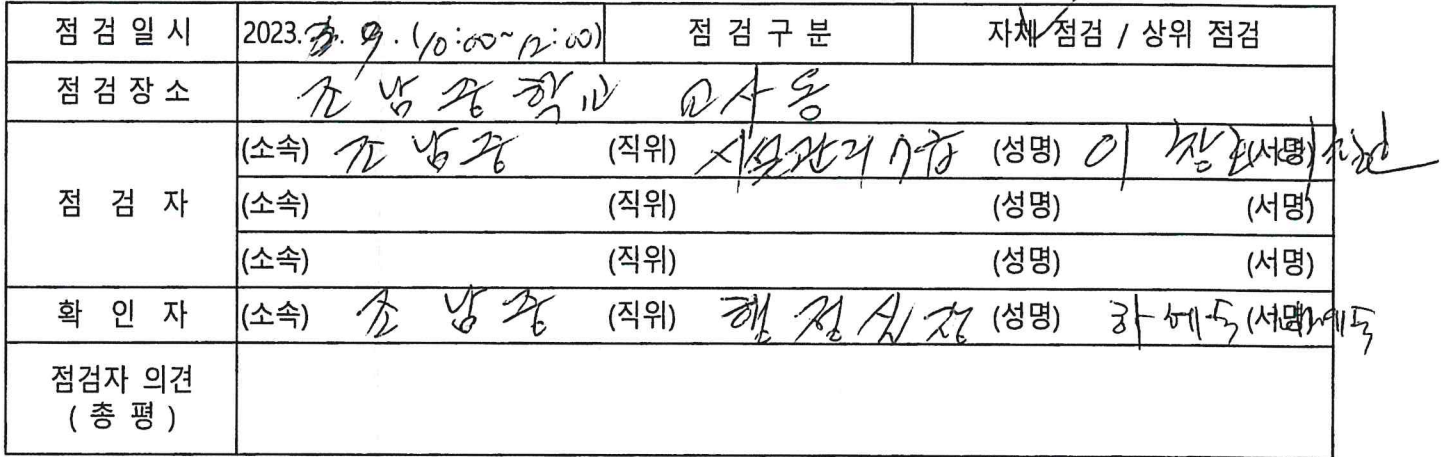 점 검 일 시 2023. 3. 9. (10:00~12:00) 점 검 구 분 자체 점검 / 상위 점검
점 검 장 소 조남중학교 교사동
(소속) 조남중 (직위) 시설관리 7급 (성명) 이창 (서명)
점 검 자 (소속) (직위) (성명) (서명)
(소속) (직위) (성명) (서명)
확 인 자 (소속) 조남중 (직위) 행정실장 (성명) 하베독 (서명)
점검자 의견
( 총 평 )